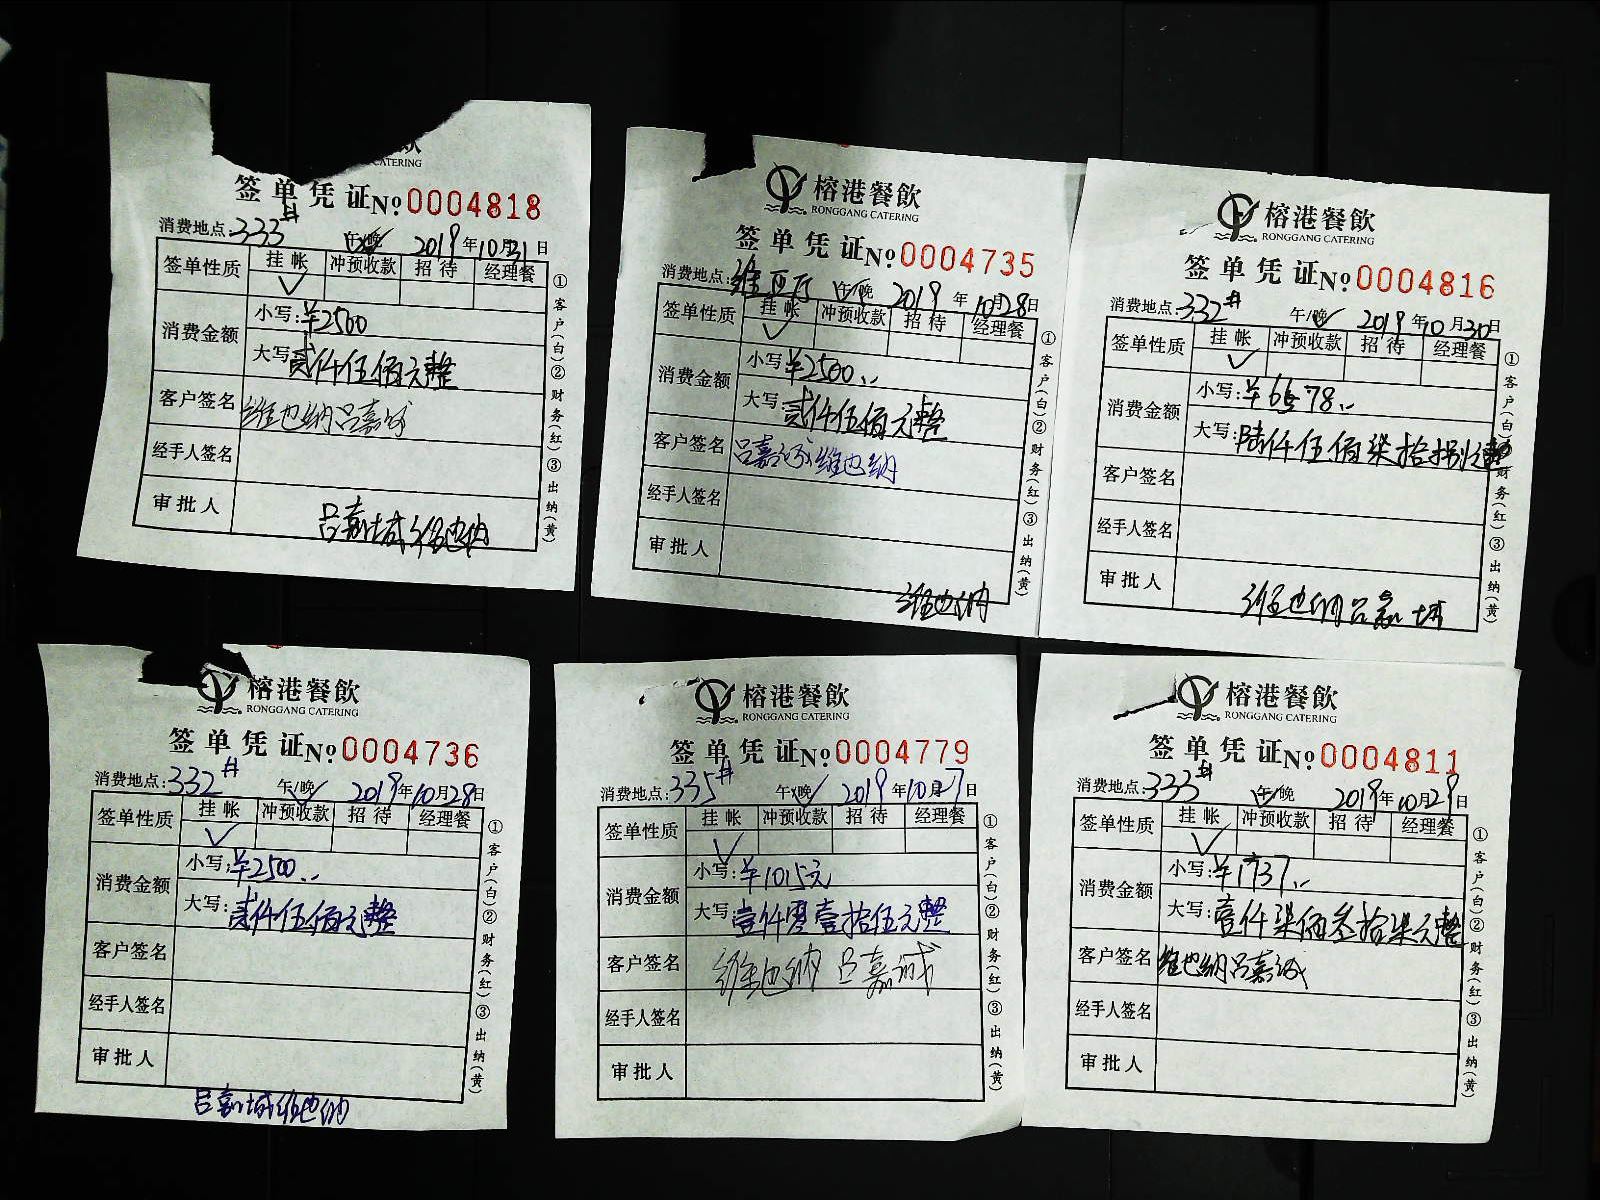 CATERING
签单凭证 No 0004818
消费地点:333# 午/晚 2019年10月31日
签单性质 挂帐 冲预收款 招待 经理餐
消费金额 小写:¥2500
大写:贰仟伍佰元整
客户签名 维也纳吕嘉城
经手人签名
审批人
吕嘉城维也纳
①客户(白)②财务(红)③出纳(黄)
榕港餐飲
RONGGANG CATERING
签单凭证 No 0004735
消费地点:维亚厅 午/晚 2019年10月28日
签单性质 挂帐 冲预收款 招待 经理餐
消费金额 小写:¥2500..
大写:贰仟伍佰元整
客户签名 吕嘉城维也纳
经手人签名
审批人
维也纳
①客户(白)②财务(红)③出纳(黄)
榕港餐飲
RONGGANG CATERING
签单凭证 No 0004816
消费地点:332# 午/晚 2019年10月30日
签单性质 挂帐 冲预收款 招待 经理餐
消费金额 小写:¥6578..
大写:陆仟伍佰柒拾捌元整
客户签名
经手人签名
审批人
维也纳吕嘉城
①客户(白)②财务(红)③出纳(黄)
榕港餐飲
RONGGANG CATERING
签单凭证 No 0004736
消费地点:332# 午/晚 2019年10月28日
签单性质 挂帐 冲预收款 招待 经理餐
消费金额 小写:¥2500..
大写:贰仟伍佰元整
客户签名
经手人签名
审批人
吕嘉城维也纳
①客户(白)②财务(红)③出纳(黄)
榕港餐飲
RONGGANG CATERING
签单凭证 No 0004779
消费地点:335# 午/晚 2019年10月27日
签单性质 挂帐 冲预收款 招待 经理餐
消费金额 小写:¥1015元
大写:壹仟零壹拾伍元整
客户签名 维也纳 吕嘉城
经手人签名
审批人
①客户(白)②财务(红)③出纳(黄)
榕港餐飲
RONGGANG CATERING
签单凭证 No 0004811
消费地点:333# 午/晚 2019年10月29日
签单性质 挂帐 冲预收款 招待 经理餐
消费金额 小写:¥1737..
大写:壹仟柒佰叁拾柒元整
客户签名 维也纳吕嘉城
经手人签名
审批人
①客户(白)②财务(红)③出纳(黄)